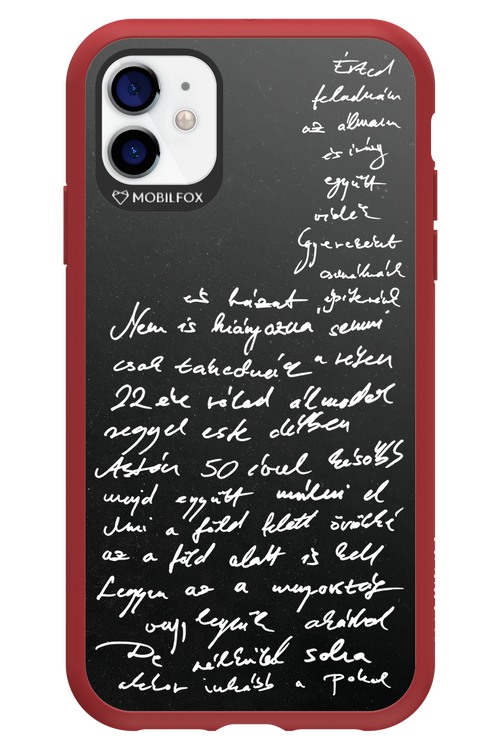 MOBILFOX
Érted
feladnám
az álmom
és irány
együtt
vidék
Gyerekeket
csinálnánk
és házat építenénk
Nem is hiányozna semmi
csak takednéz a réten
22 éve rólad álmodok
reggel este délben
Aztán 50 évvel később
majd együtt múlni el
Ami a föld felett örökké
az a föld alatt is kell
Legyen az a mennyország
vagy legyünk akárhol
De nélküled soha
akkor inkább a pokol